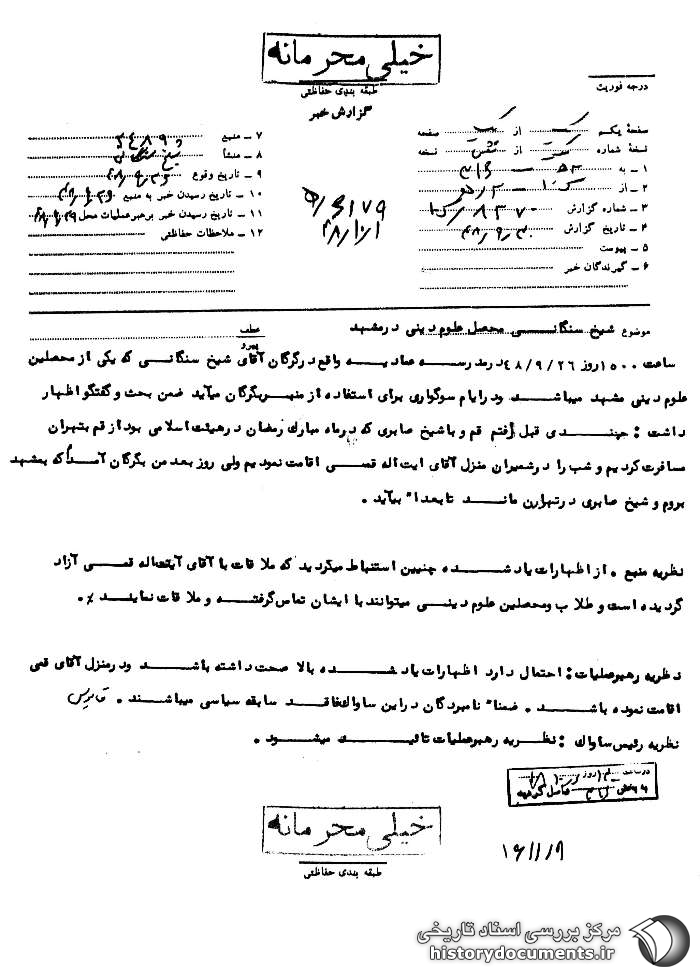 خیلی محرمانه
طبقه بندی حفاظتی
گزارش خبر
درجه فوریت
صفحهٔ یکم از صفحه
نسخهٔ شماره از نسخه
۱ ـ به
۲ ـ از
۳ ـ شماره گزارش
۴ ـ تاریخ گزارش ۴۸/۹/۳۰
۵ ـ پیوست
۶ ـ گیرندگان خبر
۷ ـ منبع ۵۴۸۹
۸ ـ منشأ
۹ ـ تاریخ وقوع ۴۸/۹/۲۶
۱۰ ـ تاریخ رسیدن خبر به منبع
۱۱ ـ تاریخ رسیدن خبر برهبر عملیات محل
۱۲ ـ ملاحظات حفاظتی
۴۸/۱۰/۱
موضوع شیخ سنگانی محصل علوم دینی در مشهد
عطف
پیرو
ساعت ۱۵۰۰ روز ۴۸/۹/۲۶ در مدرسه عمادیه واقع در گرگان آقای شیخ سنگانی که یکی از محصلین
علوم دینی مشهد میباشد و در ایام سوگواری برای استفاده از منبر بگرگان میآید ضمن بحث و گفتگو اظهار
داشت : چندی قبل رفتم قم و با شیخ صابری که در ماه مبارک رمضان در هیئت اسلامی بود از قم بتهران
مسافرت کردیم و شب را در شمیران منزل آقای ایت اله قمی اقامت نمودیم ولی روز بعد من بگرگان آمدم که بمشهد
بروم و شیخ صابری در تهران ماند تا بعدا" بیاید .
نظریه منبع . از اظهارات یاد شده چنین استنباط میگردید که ملاقات با آقای آیت اله قمی آزاد
گردیده است و طلاب و محصلین علوم دینی میتوانند با ایشان تماس گرفته و ملاقات نمایند .
نظریه رهبر عملیات : احتمال دارد اظهارات یاد شده بالا صحت داشته باشد و در منزل آقای قمی
اقامت نموده باشند . ضمنا" نامبردگان در این ساواک فاقد سابقه سیاسی میباشند .
نظریه رئیس ساواک : نظریه رهبر عملیات تائید میشود .
در ساعت روز
به بخش واصل گردید
خیلی محرمانه
طبقه بندی حفاظتی
مرکز بررسی اسناد تاریخی
historydocuments.ir